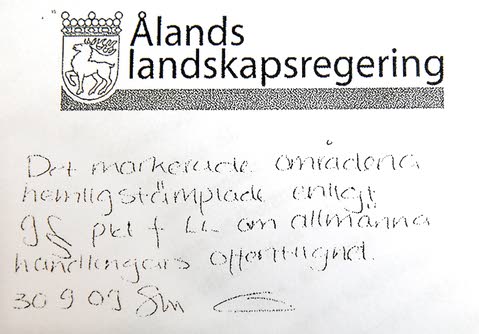 Ålands
landskapsregering
Det markerade områdena
hemligstämplade enligt
9§ pkt f LL om allmänna
handlingars offentlighet.
30 9 09